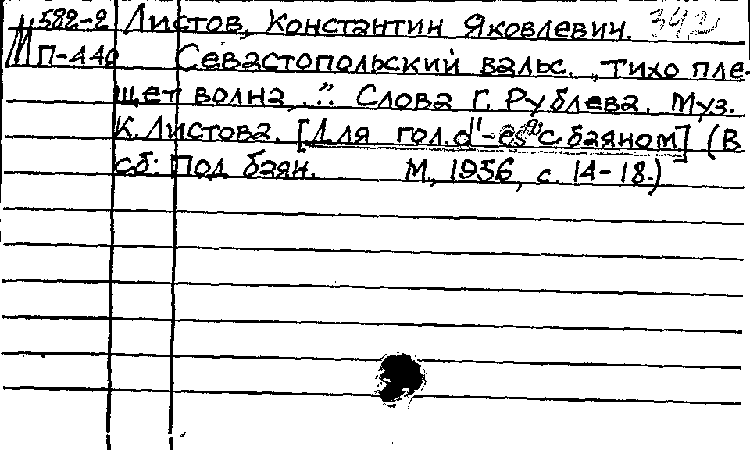 М 582-2 Листов, Константин Яковлевич. 342
П-440 Севастопольский вальс. „Тихо пле-
щет волна...". Слова Г. Рублева. Муз.
К. Листова. [Для гол. d'-es² с баяном] (В
сб: Под баян. М., 1956, с. 14-18.)